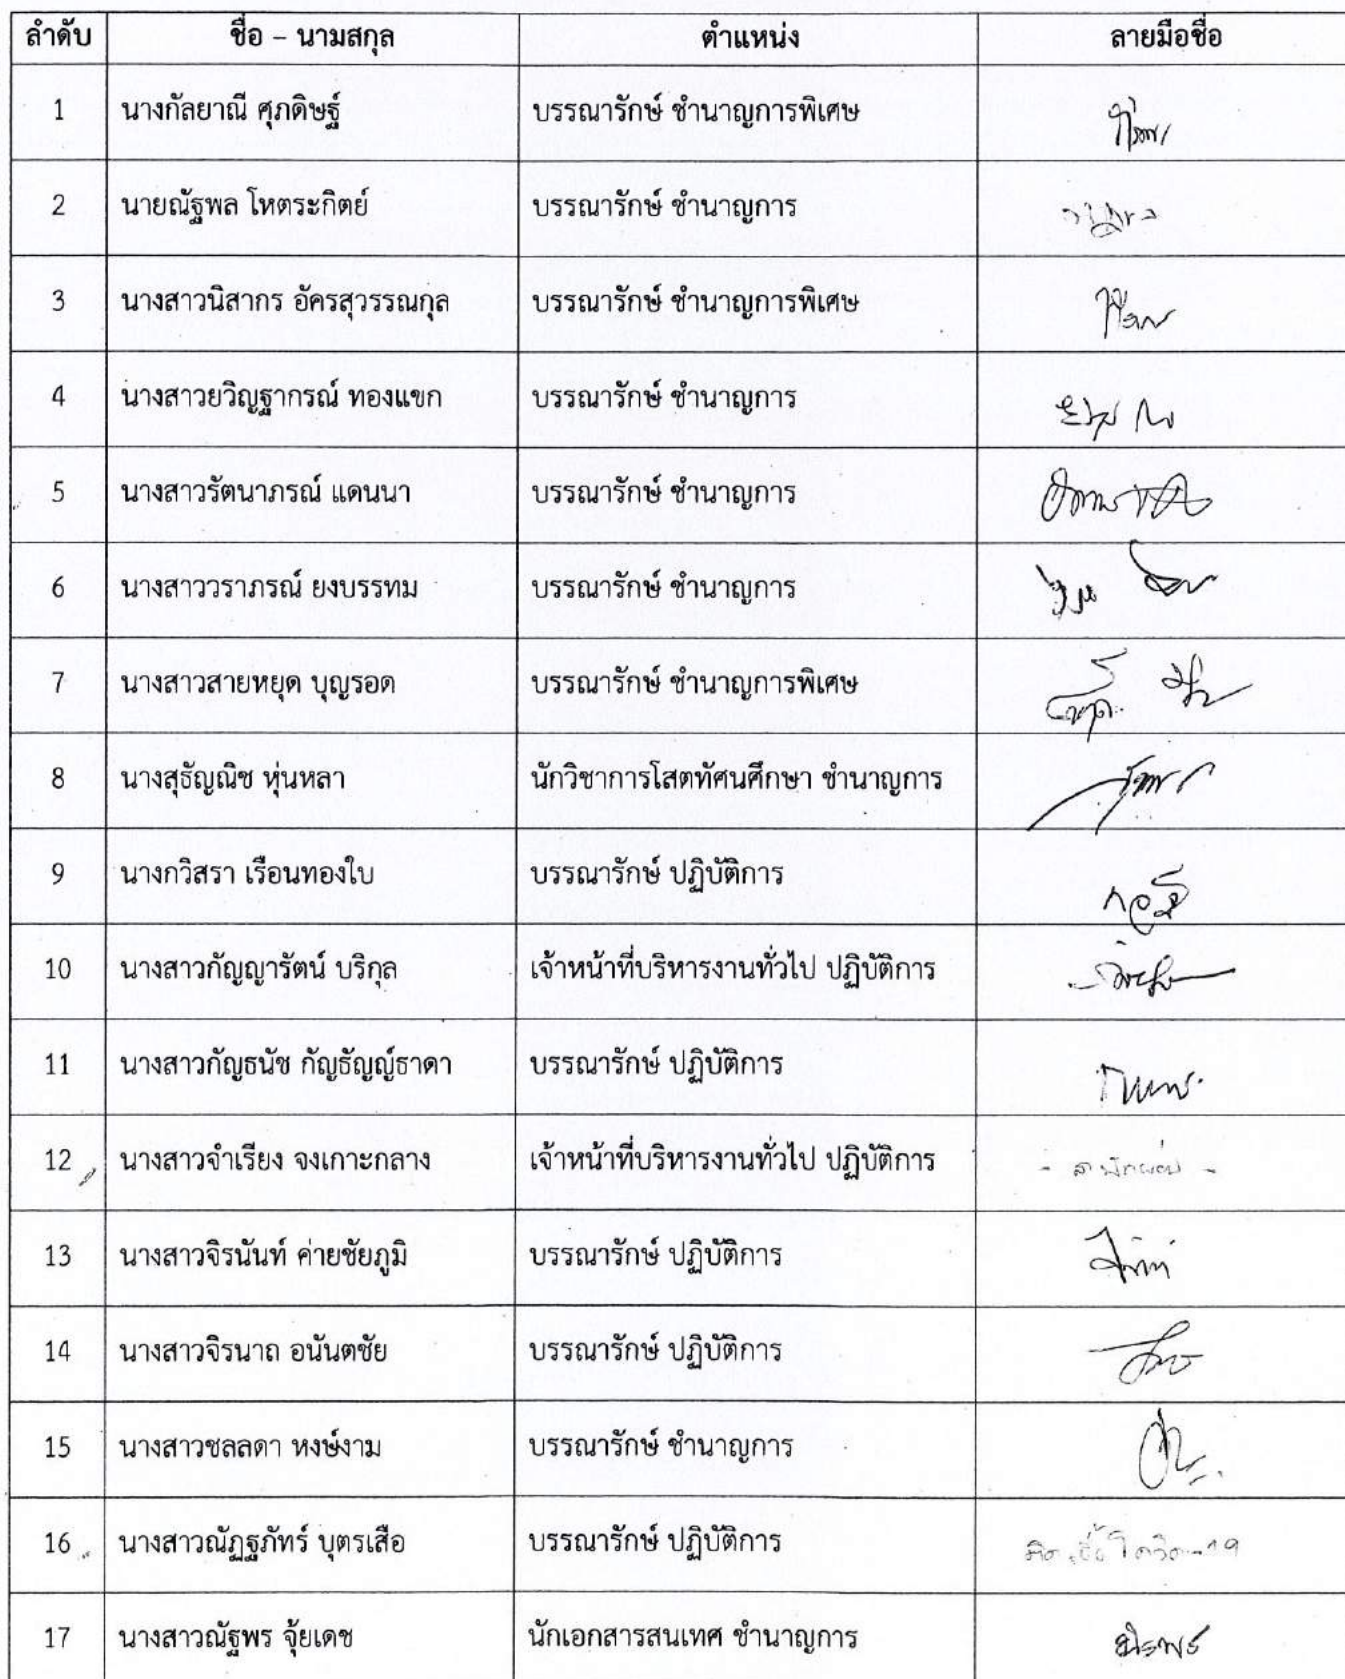 ลำดับ ชื่อ – นามสกุล ตำแหน่ง ลายมือชื่อ
1 นางกัลยาณี ศุภดิษฐ์ บรรณารักษ์ ชำนาญการพิเศษ
2 นายณัฐพล โหตระกิตย์ บรรณารักษ์ ชำนาญการ
3 นางสาวนิสากร อัครสุวรรณกุล บรรณารักษ์ ชำนาญการพิเศษ
4 นางสาวยวิญฐากรณ์ ทองแขก บรรณารักษ์ ชำนาญการ
5 นางสาวรัตนาภรณ์ แดนนา บรรณารักษ์ ชำนาญการ
6 นางสาววราภรณ์ ยงบรรทม บรรณารักษ์ ชำนาญการ
7 นางสาวสายหยุด บุญรอด บรรณารักษ์ ชำนาญการพิเศษ
8 นางสุธัญณิช หุ่นหลา นักวิชาการโสตทัศนศึกษา ชำนาญการ
9 นางกวิสรา เรือนทองใบ บรรณารักษ์ ปฏิบัติการ
10 นางสาวกัญญารัตน์ บริกุล เจ้าหน้าที่บริหารงานทั่วไป ปฏิบัติการ
11 นางสาวกัญธนัช กัญธัญญ์ธาดา บรรณารักษ์ ปฏิบัติการ
12 นางสาวจำเรียง จงเกาะกลาง เจ้าหน้าที่บริหารงานทั่วไป ปฏิบัติการ - ลาพักผ่อน -
13 นางสาวจิรนันท์ ค่ายชัยภูมิ บรรณารักษ์ ปฏิบัติการ
14 นางสาวจิรนาถ อนันตชัย บรรณารักษ์ ปฏิบัติการ
15 นางสาวชลลดา หงษ์งาม บรรณารักษ์ ชำนาญการ
16 นางสาวณัฏฐภัทร์ บุตรเสือ บรรณารักษ์ ปฏิบัติการ ติดเชื้อโควิด-19
17 นางสาวณัฐพร จุ้ยเดช นักเอกสารสนเทศ ชำนาญการ